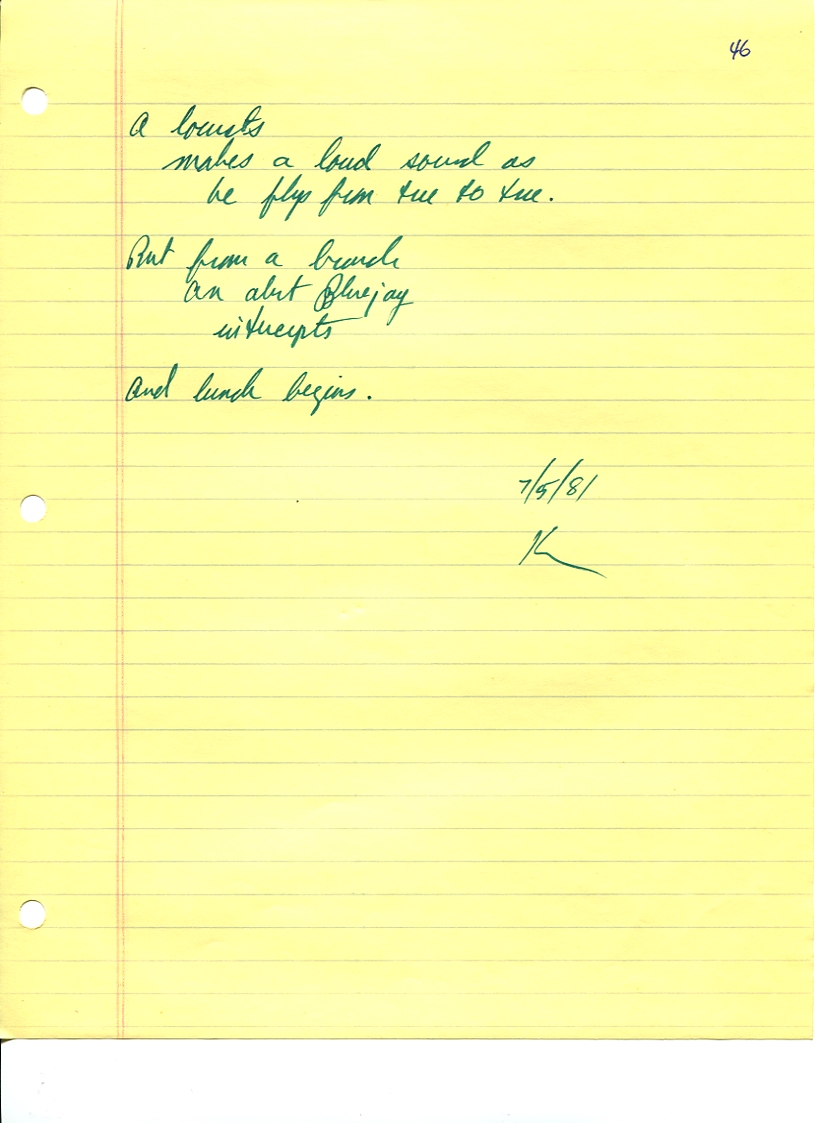 46
A locusts
makes a loud sound as
he flys from tree to tree.
But from a branch
an alert Bluejay
intercepts
and lunch begins.
7/5/81
K